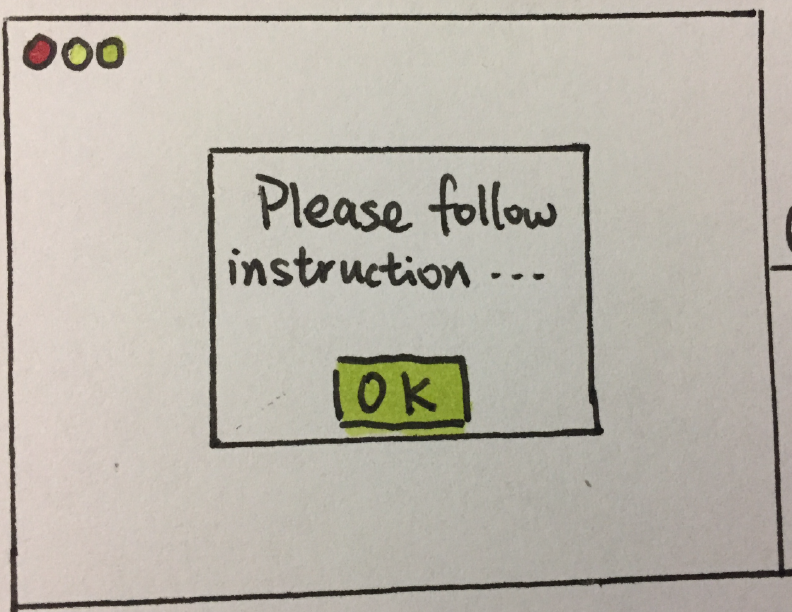 Please follow
instruction ---
OK